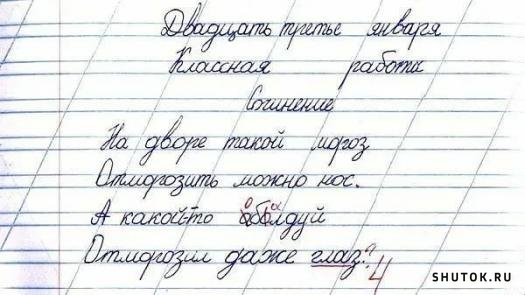 Двадцать третье января
Классная работа
Сочинение
На дворе такой мороз
Отморозить можно нос.
А какой-то оболдуй
Отморозил даже глаз? 4
SHUTOK.RU